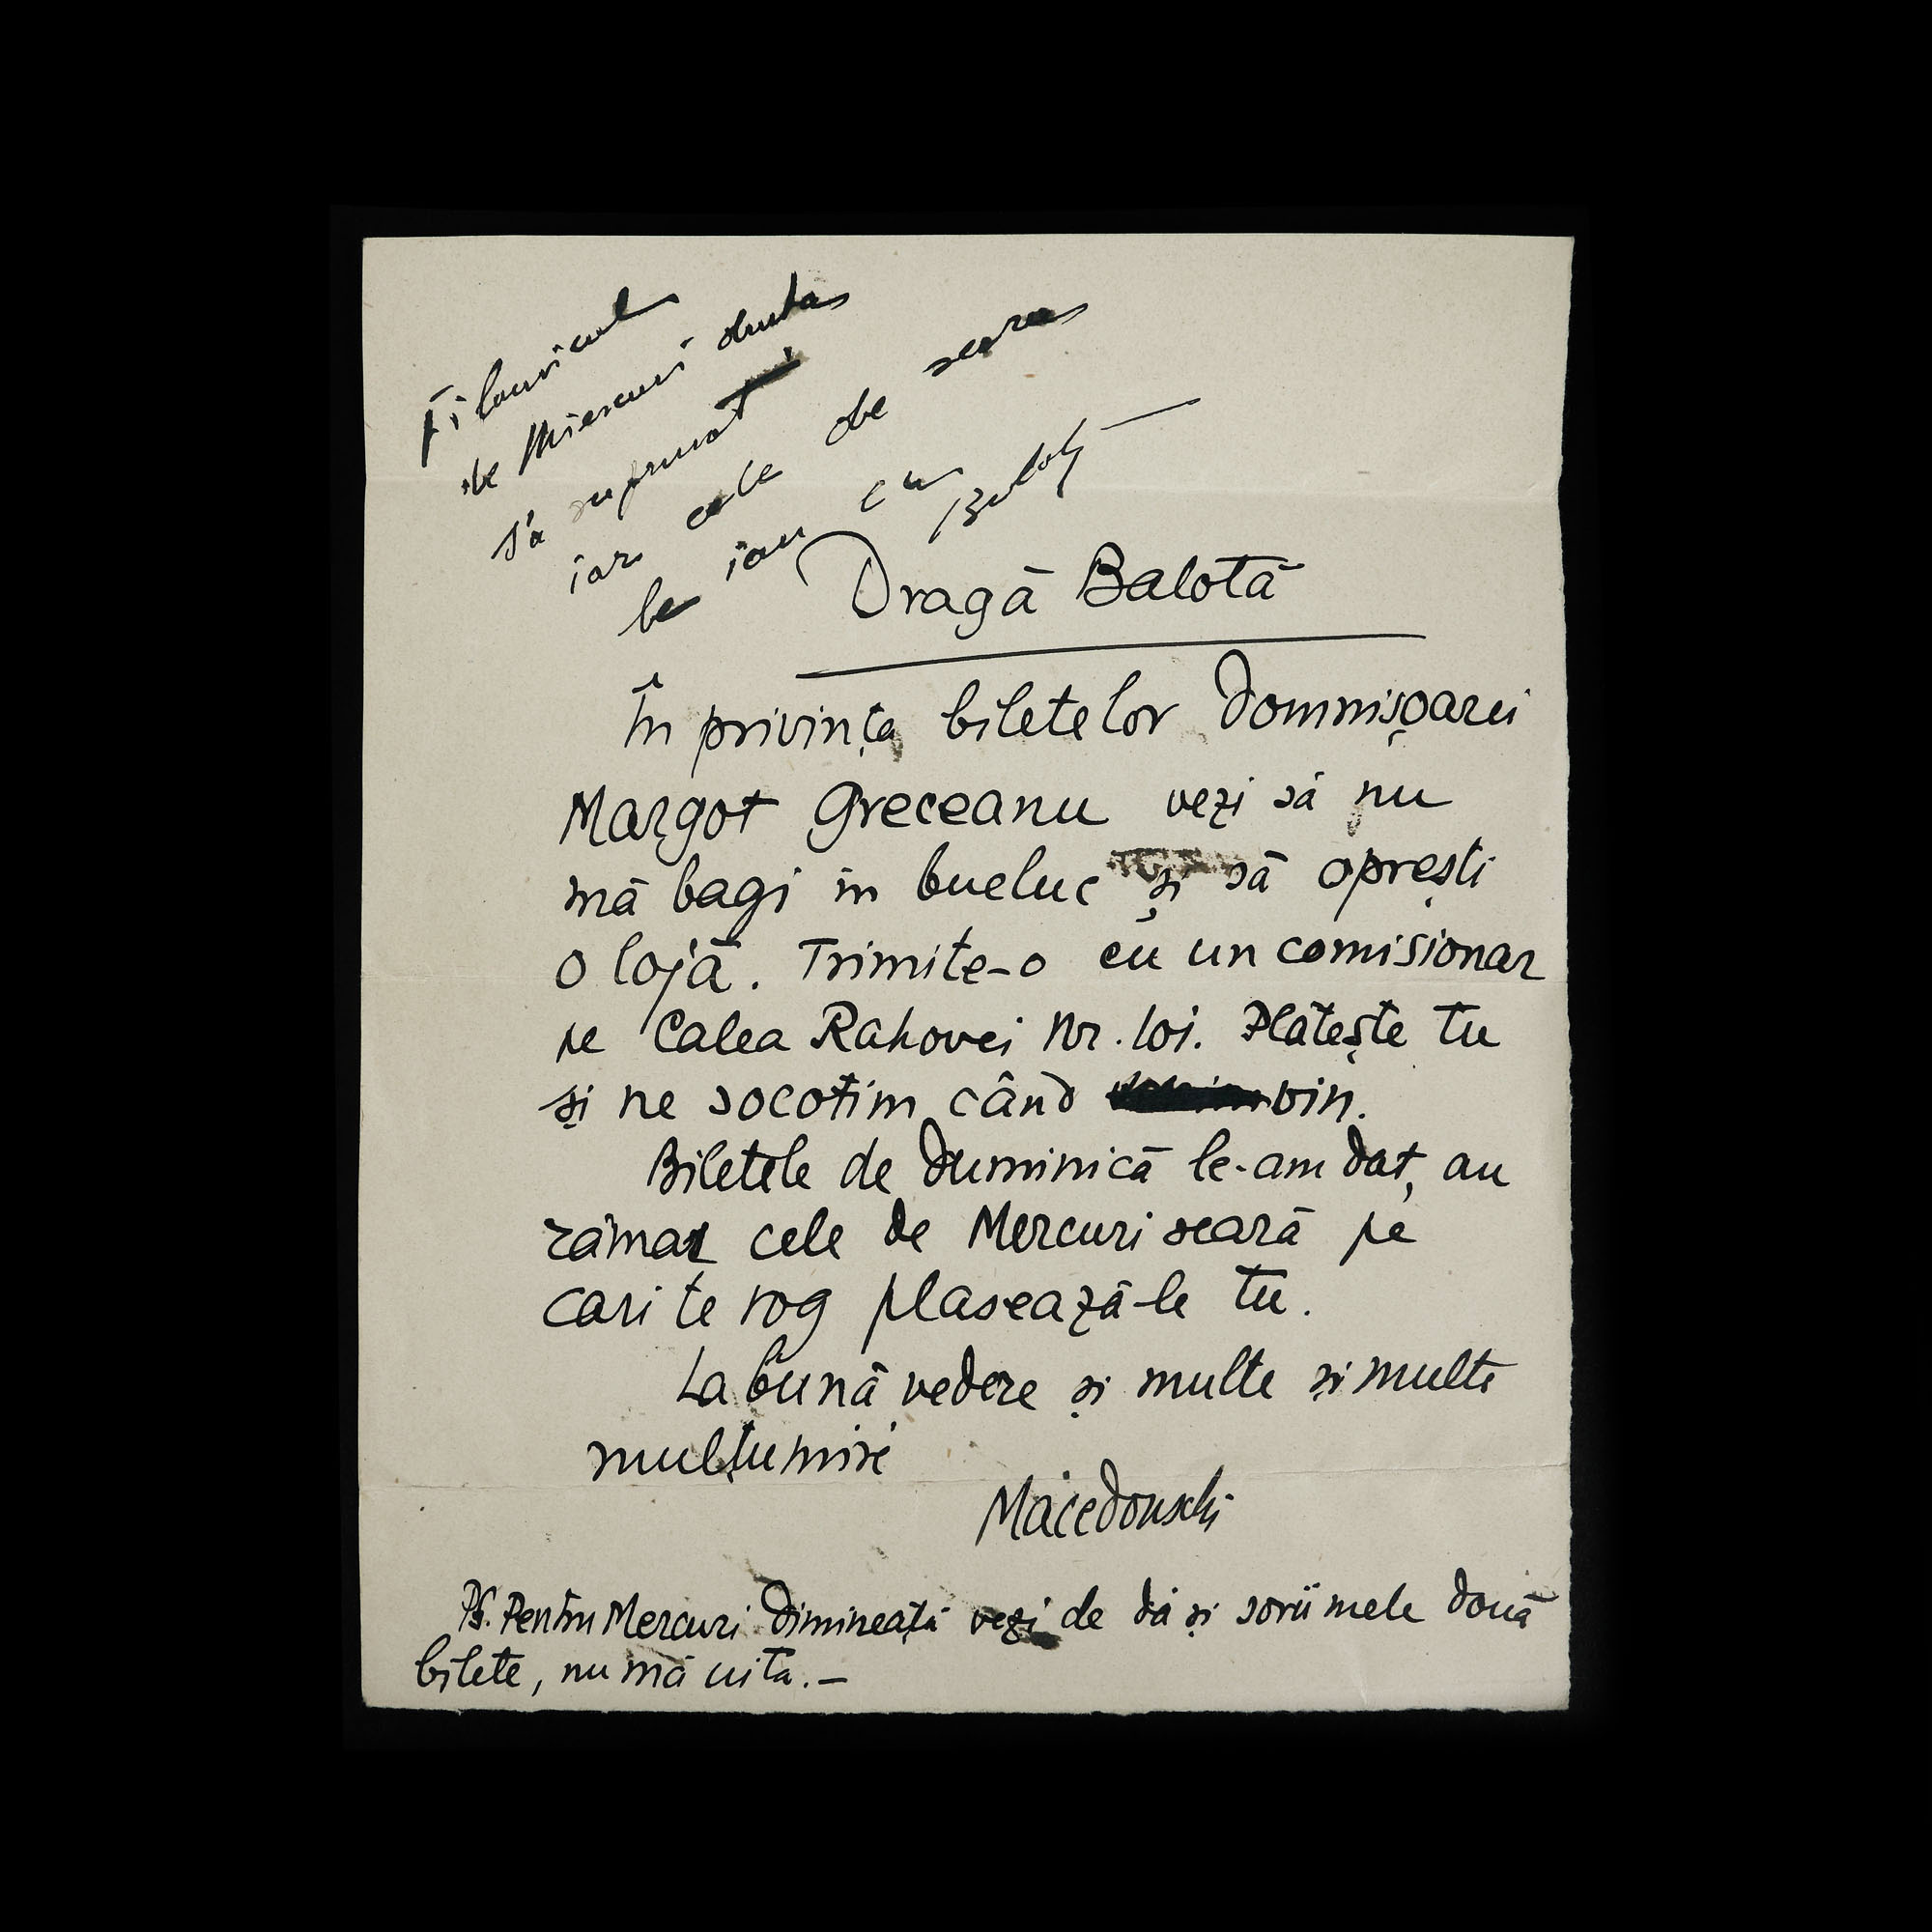 de Miercuri
s'a suprimat
iar cele de seara
le iau eu
Balotă
Dragă Balotă
În privința biletelor Domnișoarei
Margot Greceanu vezi să nu
mă bagi în bueluc și să oprești
o lojă. Trimite-o cu un comisionar
pe Calea Rahovei Nr. 101. Plătește tu
și ne socotim când vin.
Biletele de Duminică le-am dat, au
rămas cele de Mercuri seară pe
cari te rog plasează-le tu.
La bună vedere și multe și multe
mulțumiri
Macedonschi
PS. Pentru Mercuri dimineață vezi de dă și sorii mele două
bilete, nu mă uita. —